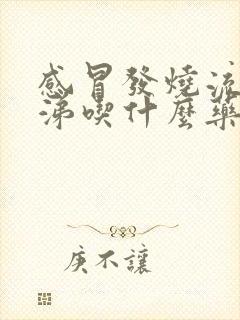 感冒發燒流
涕喫什麼藥
庚不讓